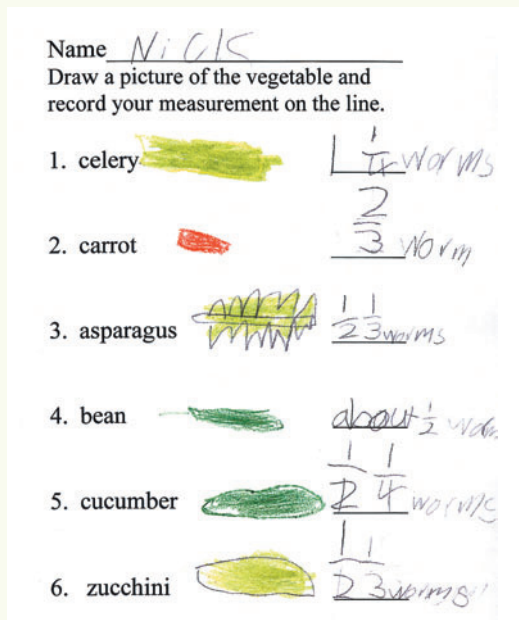 Name Nick
Draw a picture of the vegetable and
record your measurement on the line.
1. celery 1 1/4 worms
2. carrot 2/3 worm
3. asparagus 1/2 1/3 worms
4. bean about 1/2
5. cucumber 1/2 1/4 worms
6. zucchini 1/2 1/3 worms